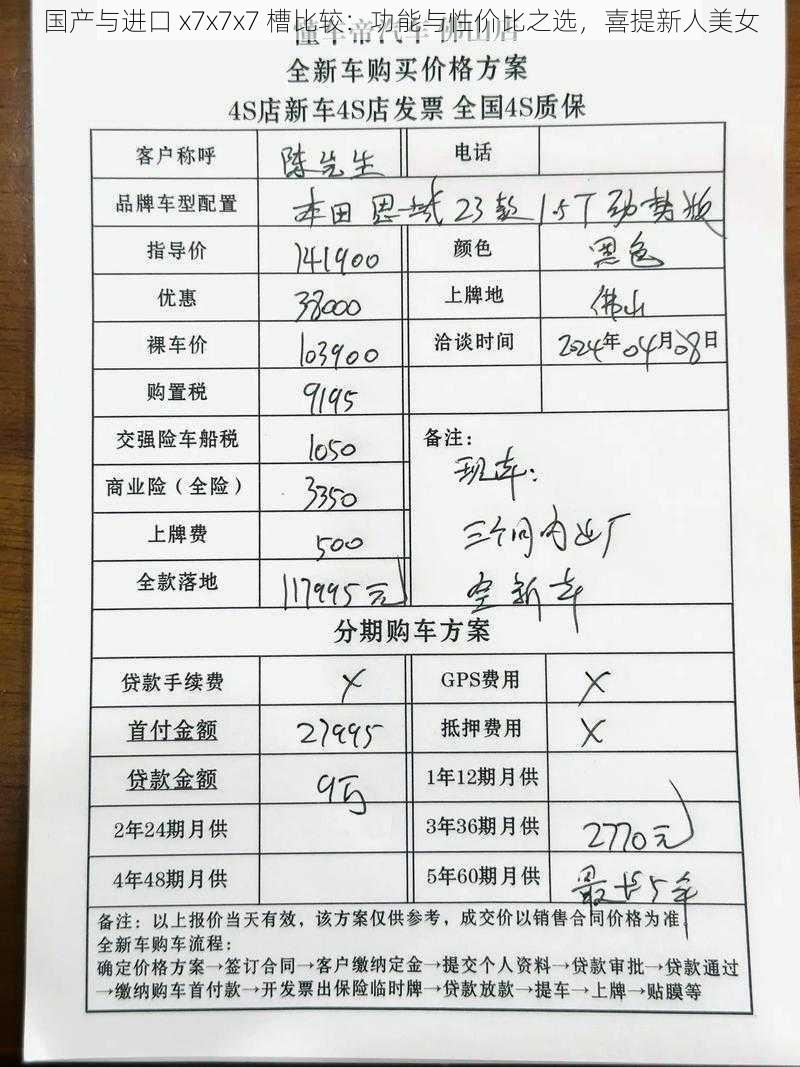 国产与进口 x7x7x7 槽比较：功能与性价比之选，喜提新人美女
懂车帝汽车 佛山店
全新车购买价格方案
4S店新车4S店发票 全国4S质保
客户称呼 陈先生 电话
品牌车型配置 本田 思域 23款 1.5T 劲势版
指导价 141900 颜色 黑色
优惠 38000 上牌地 佛山
裸车价 103900 洽谈时间 2024年04月08日
购置税 9195
交强险车船税 1050 备注：
现车：
商业险（全险） 3350
三个月内出厂
上牌费 500
全新车
全款落地 117995元
分期购车方案
贷款手续费 X GPS费用 X
首付金额 27995 抵押费用 X
贷款金额 9万 1年12期月供
2年24期月供 3年36期月供 2770元
4年48期月供 5年60期月供 最长5年
备注：以上报价当天有效，该方案仅供参考，成交价以销售合同价格为准。
全新车购车流程：
确定价格方案→签订合同→客户缴纳定金→提交个人资料→贷款审批→贷款通过
→缴纳购车首付款→开发票出保险临时牌→贷款放款→提车→上牌→贴膜等